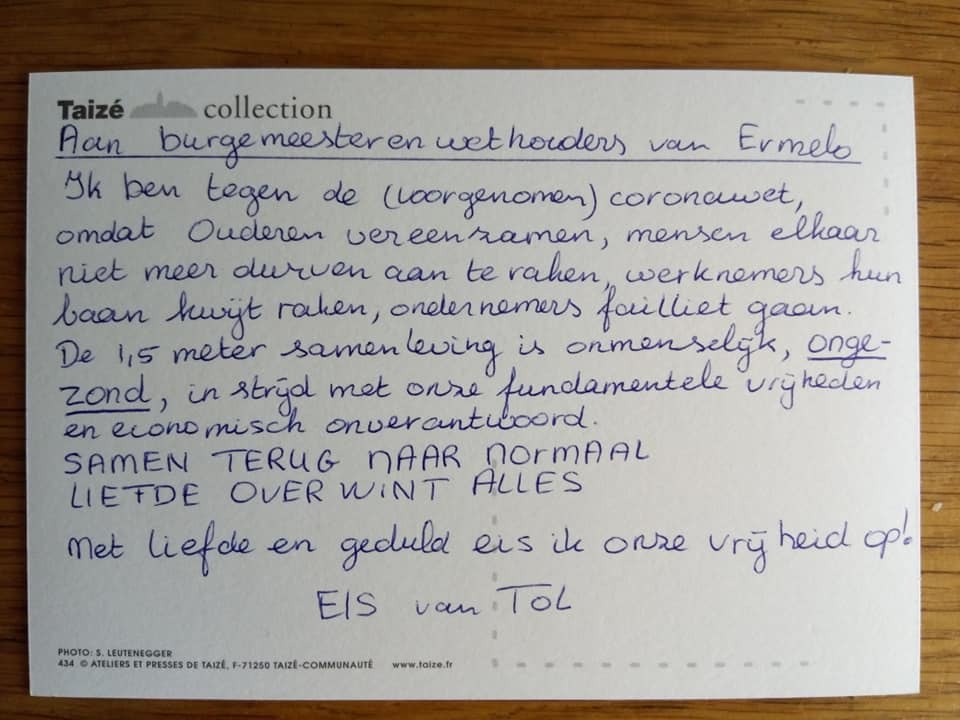 Taizé collection
Aan burgemeester en wethouders van Ermelo
Ik ben tegen de (voorgenomen) coronawet,
omdat Ouderen vereenzamen, mensen elkaar
niet meer durven aan te raken, werknemers hun
baan kwijt raken, ondernemers failliet gaan.
De 1,5 meter samenleving is onmenselijk, onge-
zond, in strijd met onze fundamentele vrijheden
en economisch onverantwoord.
SAMEN TERUG NAAR NORMAAL
LIEFDE OVERWINT ALLES
Met liefde en geduld eis ik onze vrijheid op!
EIS van TOL
PHOTO: S. LEUTENEGGER
434 © ATELIERS ET PRESSES DE TAIZÉ, F-71250 TAIZÉ-COMMUNAUTÉ www.taize.fr